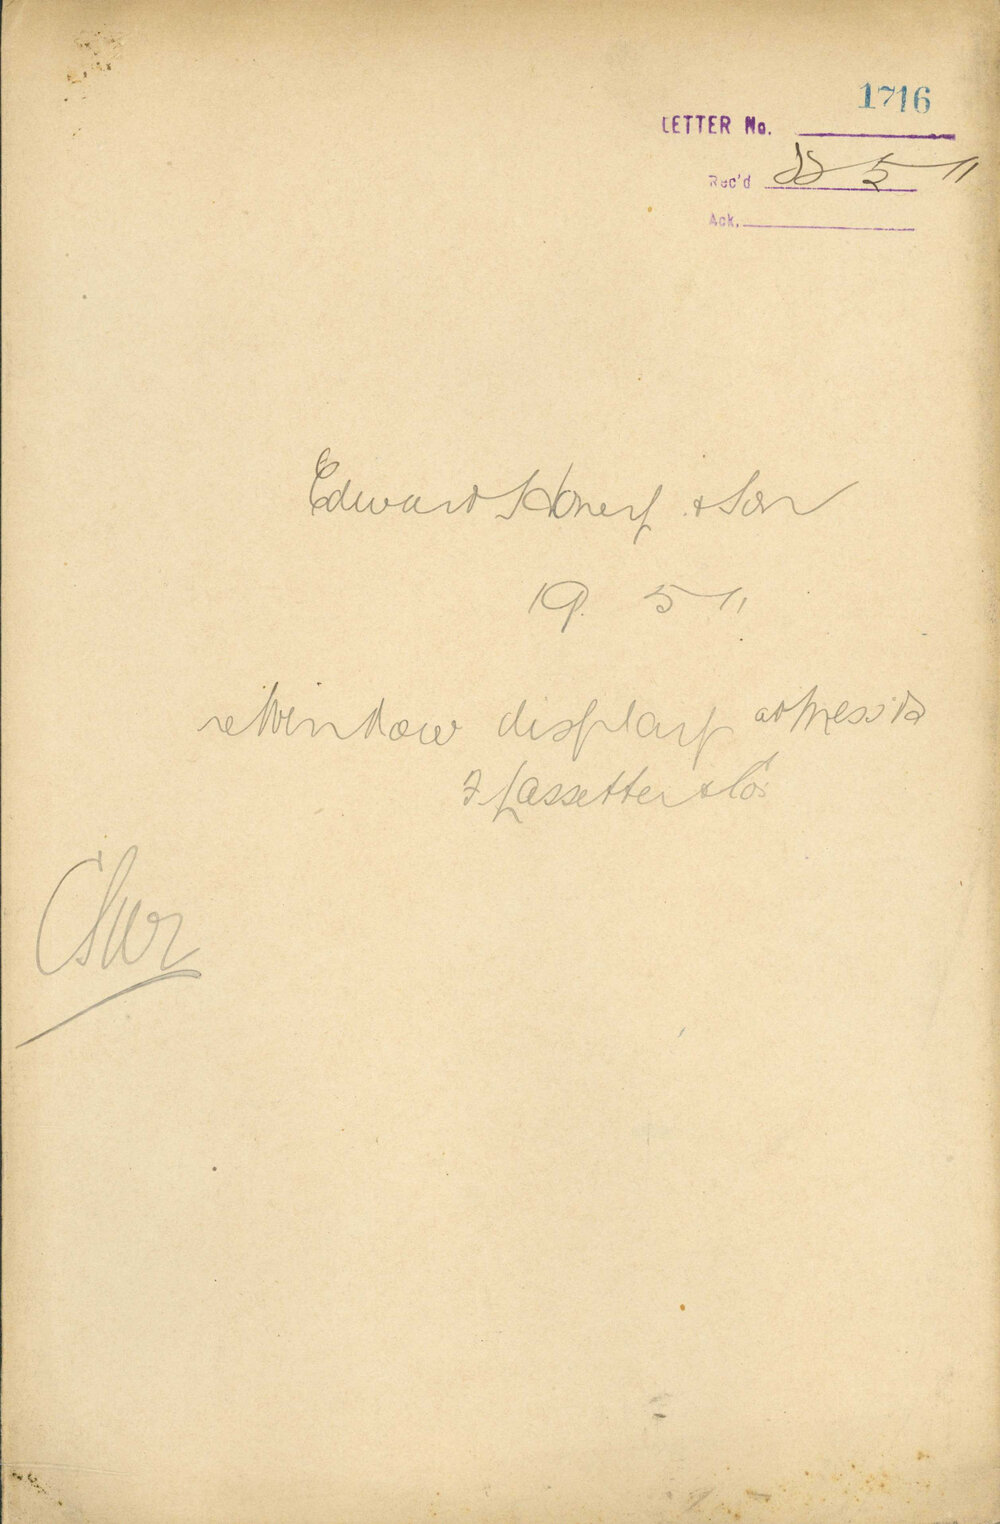 1716
LETTER No.
Rec'd 22 5 11
Ack.
Edward Honey & Son
19. 5 11
re Window display at Messrs
F Lassetter & Co.